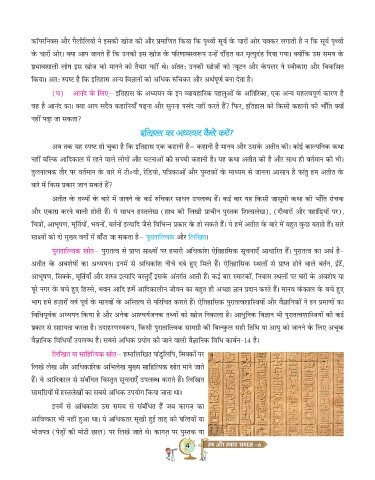 कॉपरनिकस और गैलीलियो ने इसकी खोज की और प्रमाणित किया कि पृथ्वी सूर्य के चारों ओर चक्कर लगाती है न कि सूर्य पृथ्वी
के चारों ओर। क्या आप जानते हैं कि उनकी इस खोज के परिणामस्वरूप उन्हें दंडित कर मृत्युदंड दिया गया। क्योंकि उस समय के
प्रभावशाली लोग इस खोज को मानने को तैयार नहीं थे। अंततः उनकी खोजों को न्यूटन और केपलर ने स्वीकारा और विकसित
किया। अतः स्पष्ट है कि इतिहास अन्य विज्ञानों को अधिक रुचिकर और अर्थपूर्ण बना देता है।
(घ) आनंद के लिए- इतिहास के अध्ययन के इन व्यावहारिक पहलुओं के अतिरिक्त, एक अन्य महत्त्वपूर्ण कारण है
वह है आनंद का। क्या आप सदैव कहानियाँ पढ़ना और सुनना पसंद नहीं करते हैं? फिर, इतिहास को किस्से कहानी की भाँति क्यों
नहीं पढ़ा जा सकता?
इतिहास का अध्ययन कैसे करें?
अब तक यह स्पष्ट हो चुका है कि इतिहास एक कहानी है– कहानी है मानव और उसके अतीत की। कोई काल्पनिक कथा
नहीं बल्कि आदिकाल में रहने वाले लोगों और घटनाओं की सच्ची कहानी है। यह कथा अतीत की है और साथ ही वर्तमान की भी।
तुलनात्मक तौर पर वर्तमान के बारे में टी०वी०, रेडियो, पत्रिकाओं और पुस्तकों के माध्यम से जानना आसान है परंतु हम अतीत के
बारे में किस प्रकार जान सकते हैं?
अतीत के तथ्यों के बारे में जानने के कई रुचिकर साधन उपलब्ध हैं। कई बार यह किसी जासूसी कथा की भाँति रोचक
और एकाग्र करने वाली होती हैं। ये साधन हस्तलेख (हाथ की लिखी प्राचीन पुस्तक शिलालेख), (दीवारों और पहाड़ियों पर),
चित्रों, आभूषण, मूर्तियाँ, भवनों, बर्तनों इत्यादि जैसे विभिन्न प्रकार के हो सकते हैं। ये हमें अतीत के बारे में बहुत कुछ बताते हैं। सारे
साक्ष्यों को दो मुख्य वर्गों में बाँटा जा सकता है– पुरातात्विक और लिखित।
पुरातात्विक स्रोत– पुरातत्व से प्राप्त साक्ष्यों पर हमारी अधिकांश ऐतिहासिक सूचनाएँ आधारित हैं। पुरातत्व का अर्थ है–
अतीत के अवशेषों का अध्ययन। इनमें से अधिकांश नीचे दबे हुए मिले हैं। ऐतिहासिक स्थलों से प्राप्त होने वाले बर्तन, ईंटें,
आभूषण, सिक्के, मूर्तियाँ और शस्त्र इत्यादि वस्तुएँ इसके अंतर्गत आती हैं। कई बार स्मारकों, निवास स्थलों पर घरों के अवशेष या
पूरे नगर के बचे हुए हिस्से, भवन आदि हमें आदिकालीन जीवन का बहुत ही अच्छा ज्ञान प्रदान करते हैं। मानव कंकाल के बचे हुए
भाग हमें हजारों वर्ष पूर्व के मानवों के अस्तित्व से परिचित कराते हैं। ऐतिहासिक पुरातत्वशास्त्रियों और वैज्ञानिकों ने इन प्रमाणों का
विधिपूर्वक अध्ययन किया है और अनेक आश्चर्यजनक तथ्यों को खोज निकाला है। आधुनिक विज्ञान भी पुरातत्वशास्त्रियों को कई
प्रकार से सहायता करता है। उदाहरणस्वरूप, किसी पुरातात्विक सामग्री की बिल्कुल सही तिथि या आयु को जानने के लिए अचूक
वैज्ञानिक विधियाँ उपलब्ध हैं। सबसे अधिक प्रयोग की जाने वाली वैज्ञानिक विधि कार्बन-14 है।
लिखित या साहित्यिक स्रोत– हस्तलिखित पांडुलिपि, सिक्कों पर
लिखे लेख और आधिकारिक अभिलेख मुख्य साहित्यिक स्रोत माने जाते
हैं। वे आदिकाल से संबंधित विस्तृत सूचनाएँ उपलब्ध कराते हैं। लिखित
सामग्रियों में हस्तलेखों का सबसे अधिक उपयोग किया जाता था।
इनमें से अधिकांश उस समय से संबंधित हैं जब कागज का
आविष्कार भी नहीं हुआ था। ये अधिकतर सूखी हुई ताड़ की पत्तियों या
भोजपत्र (पेड़ों की मोटी छाल) पर लिखे जाते थे। कागज पर पुस्तक या
4
हम और हमारा समाज -6